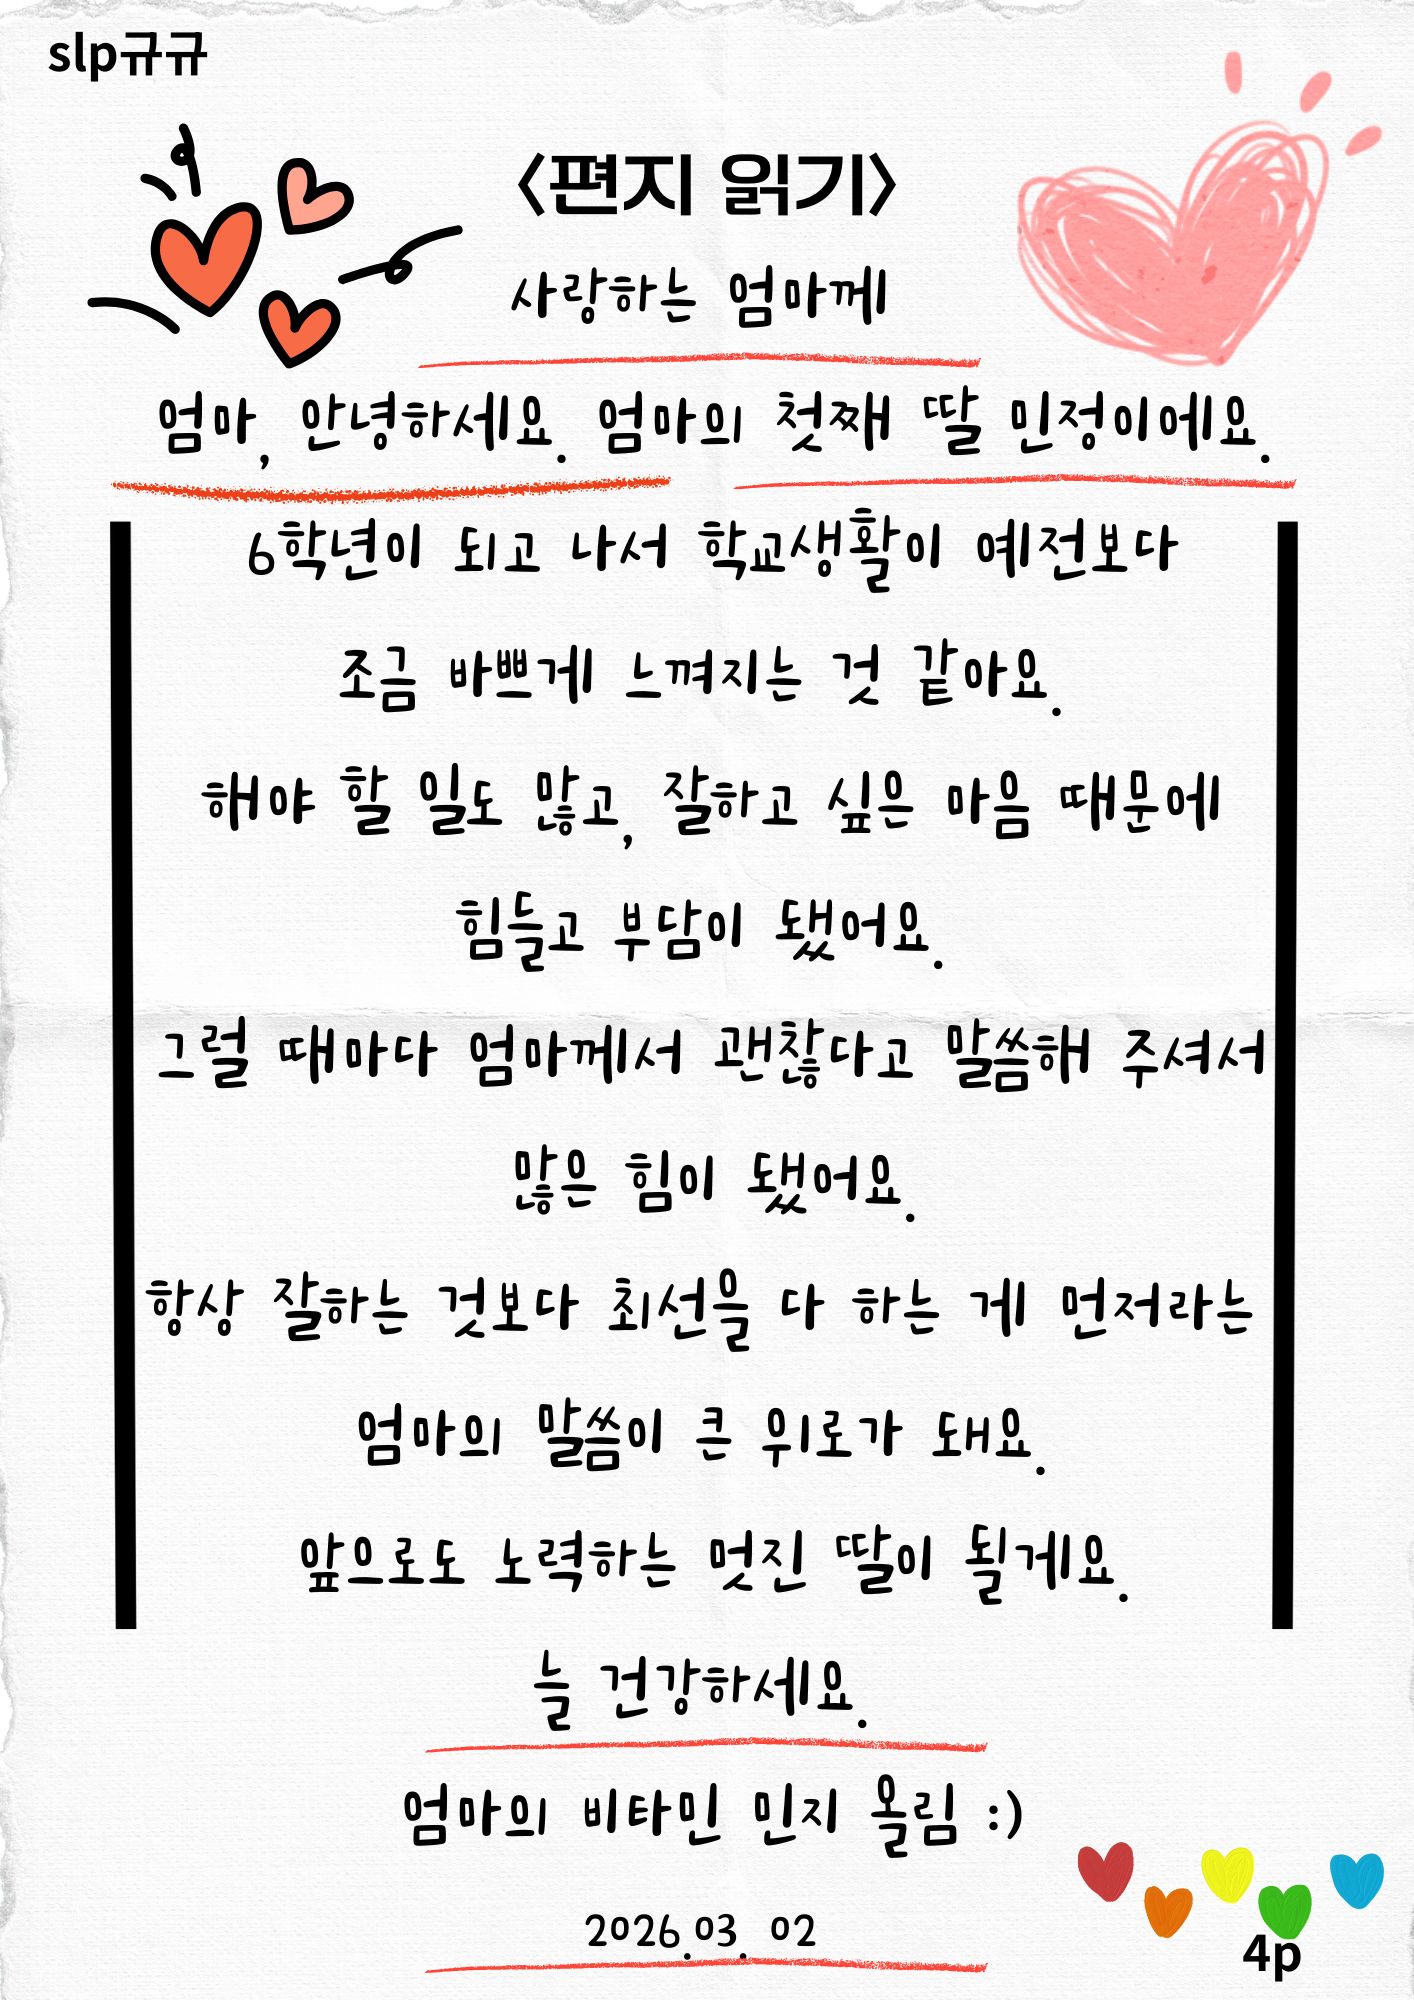 slp규규
<편지 읽기>
사랑하는 엄마께
엄마, 안녕하세요. 엄마의 첫째 딸 민정이에요.
6학년이 되고 나서 학교생활이 예전보다
조금 바쁘게 느껴지는 것 같아요.
해야 할 일도 많고, 잘하고 싶은 마음 때문에
힘들고 부담이 됐어요.
그럴 때마다 엄마께서 괜찮다고 말씀해 주셔서
많은 힘이 됐어요.
항상 잘하는 것보다 최선을 다 하는 게 먼저라는
엄마의 말씀이 큰 위로가 돼요.
앞으로도 노력하는 멋진 딸이 될게요.
늘 건강하세요.
엄마의 비타민 민지 올림 :)
2026.03. 02
4p